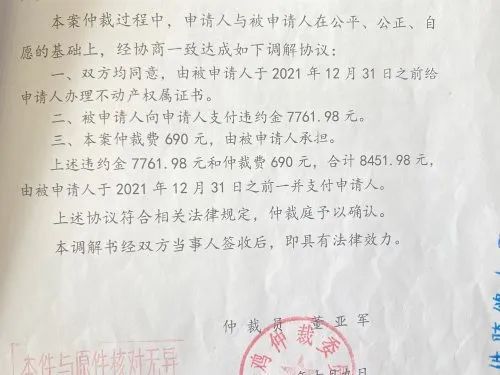 本案仲裁过程中，申请人与被申请人在公平、公正、自
愿的基础上，经协商一致达成如下调解协议：
一、双方均同意，由被申请人于 2021 年 12 月 31 日之前给
申请人办理不动产权属证书。
二、被申请人向申请人支付违约金 7761.98 元。
三、本案仲裁费 690 元，由被申请人承担。
上述违约金 7761.98 元和仲裁费 690 元，合计 8451.98 元，
由被申请人于 2021 年 12 月 31 日之前一并支付申请人。
上述协议符合相关法律规定，仲裁庭予以确认。
本调解书经双方当事人签收后，即具有法律效力。
仲裁员 董亚军
鸡仲裁委
本件与原件核对无异